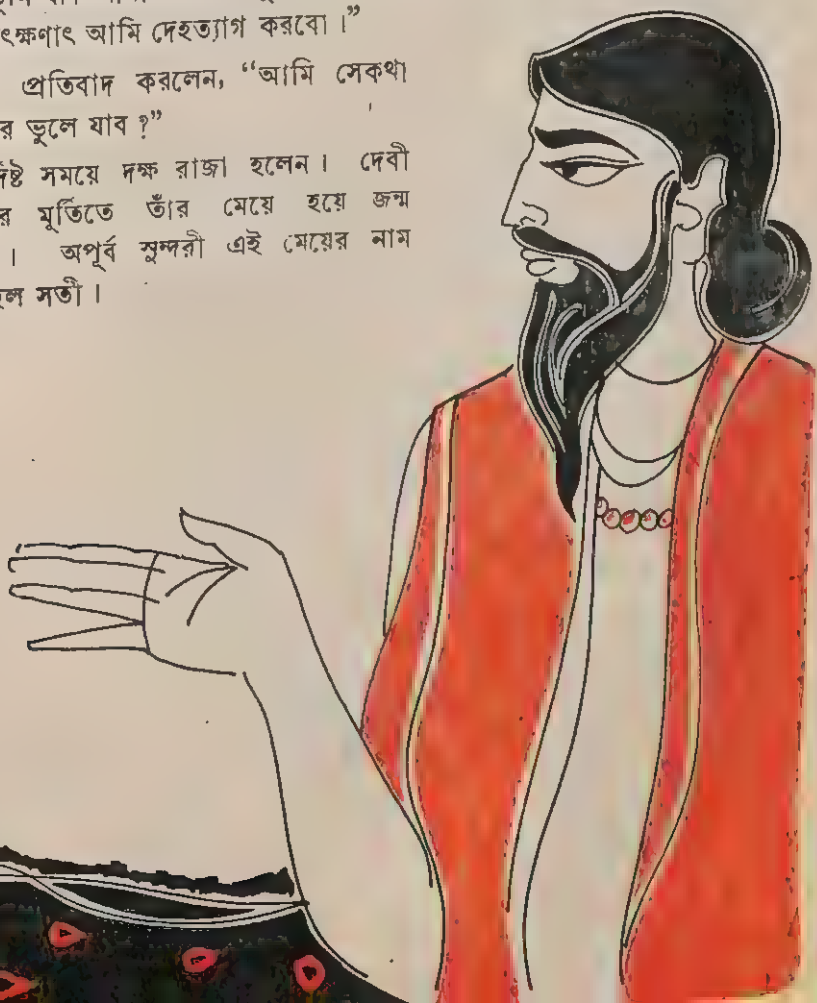 ৎক্ষণাৎ আমি দেহত্যাগ করবো।”
প্রতিবাদ করলেন, “আমি সেকথা
র ভুলে যাব ?”
র্দিষ্ট সময়ে দক্ষ রাজা হলেন। দেবী
র মূর্তিতে তাঁর মেয়ে হয়ে জন্ম
। অপূর্ব সুন্দরী এই মেয়ের নাম
হল সতী।